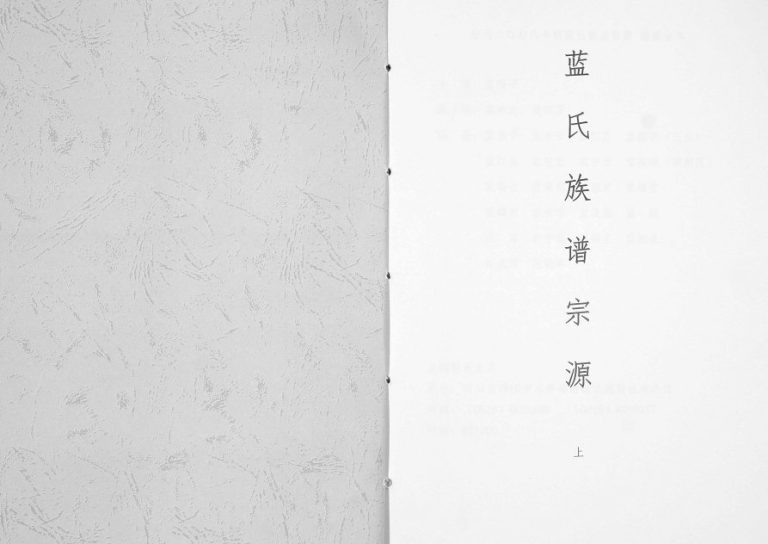 蓝氏族谱宗源
上